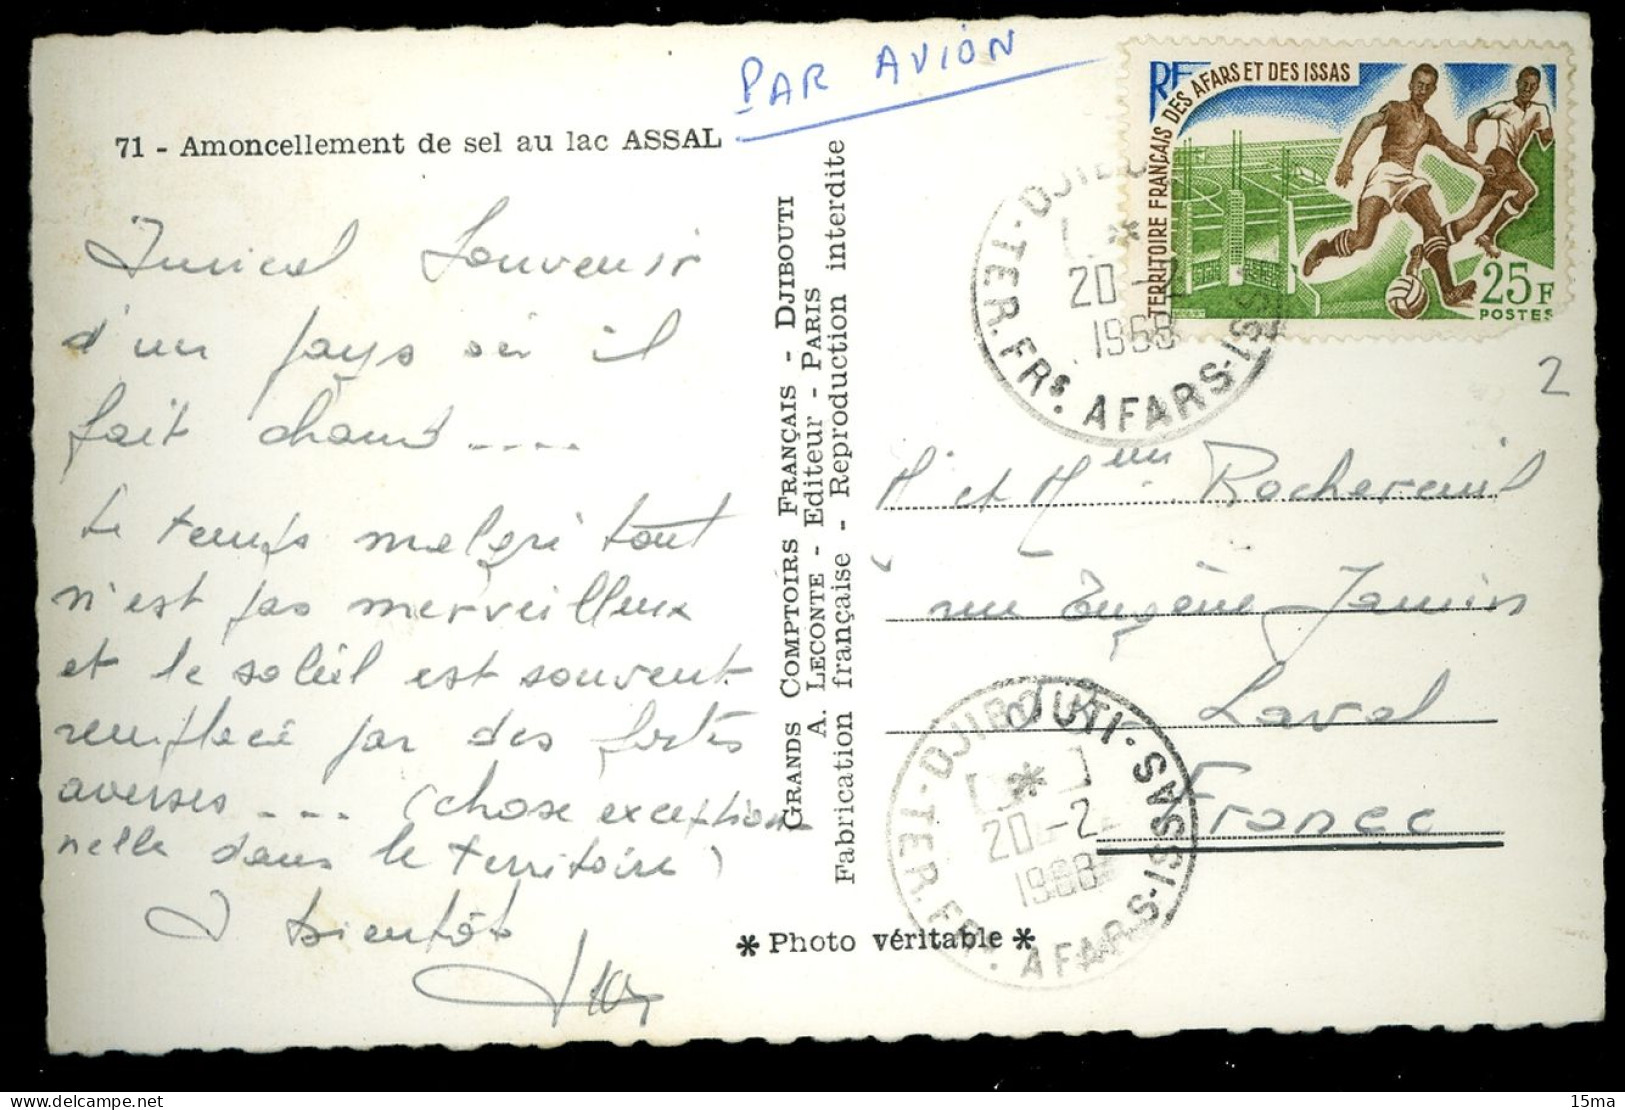 PAR AVION
71 - Amoncellement de sel au lac ASSAL
Amical Souvenir
d'un pays où il
fait chaud ....
Le temps malgré tout
n'est pas merveilleux
et le soleil est souvent
remplacé par des fortes
averses .... (chose exception
nelle dans le territoire)
A bientôt
GRANDS COMPTOIRS FRANÇAIS - DJIBOUTI
A. LECONTE - Editeur - PARIS
Fabrication française - Reproduction interdite
* Photo véritable *
RF
TERRITOIRE FRANÇAIS DES AFARS ET DES ISSAS
25F
POSTES
DJIBOUTI
*
20 -2
1968
TER. FRS. AFARS-ISSAS
2
Mr et Mme Rochereuil
rue Eugène Jamin
Laval
France
DJIBOUTI
*
20 -2
1968
TER. FRS. AFARS-ISSAS
15ma